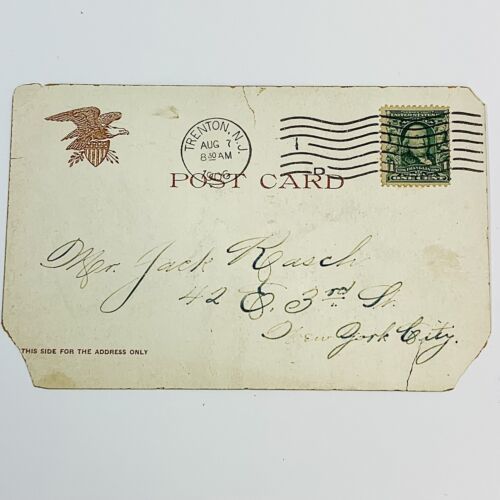 TRENTON, N.J.
AUG 7
8 30 AM
1906
1
D
UNITED STATES
1 1
ONE CENT
POST CARD
Mr. Jack Rasch
42 E. 3rd St.
New York City.
THIS SIDE FOR THE ADDRESS ONLY